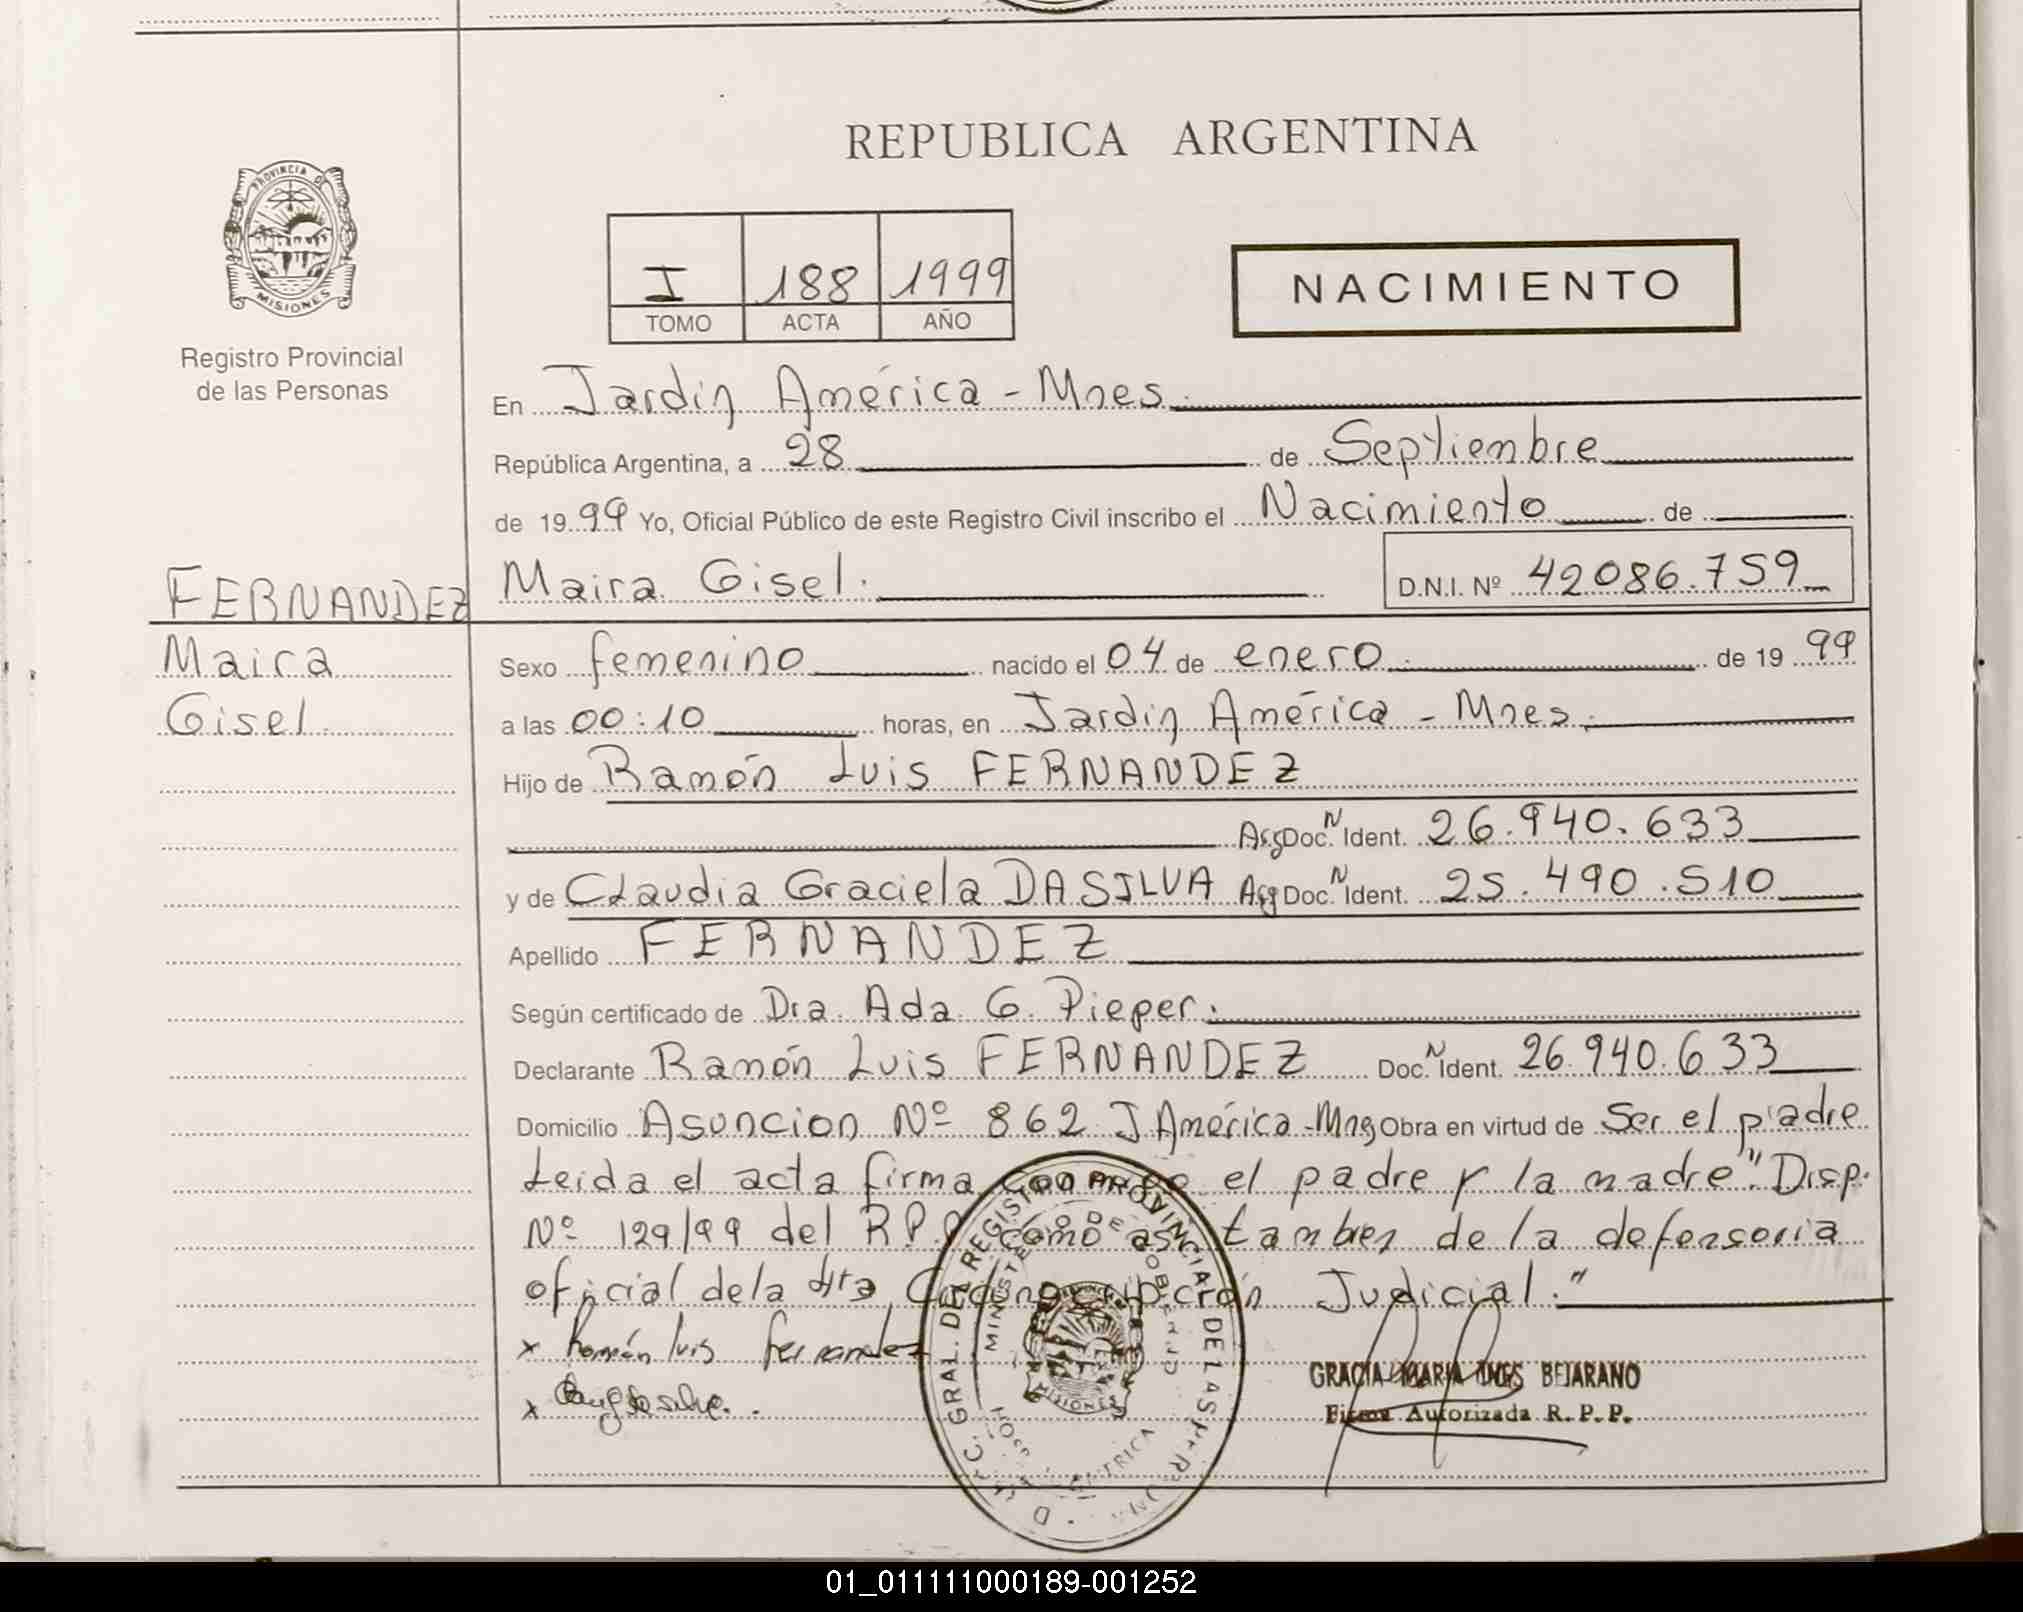 REPUBLICA ARGENTINA
PROVINCIA DE
MISIONES
Registro Provincial
de las Personas
I 188 1999
TOMO ACTA AÑO
NACIMIENTO
En Jardin América - Mnes.
República Argentina, a 28 de Septiembre
de 1999 Yo, Oficial Público de este Registro Civil inscribo el Nacimiento de
FERNANDEZ Maira Gisel. D.N.I. Nº 42086.759
Maira
Gisel.
Sexo femenino nacido el 04 de enero. de 1999
a las 00:10 horas, en Jardin América - Mnes.
Hijo de Ramón Luis FERNANDEZ
Arg Doc. N Ident. 26.940.633
y de Claudia Graciela DASILVA Arg Doc. N Ident. 25.490.510
Apellido FERNANDEZ
Según certificado de Dra. Ada G. Pieper.
Declarante Ramón Luis FERNANDEZ Doc. N Ident. 26.940.633
Domicilio Asuncion Nº 862 J América - Mns Obra en virtud de Ser el padre
Leida el acta firma el padre y la madre". Disp.
Nº 129/99 del R.P.P como asi tambien de la defensoria
oficial de la 4ta Judicial."
x Ramón luis fernandez
x
GRACIA MARIA INES BEJARANO
Firma Autorizada R. P. P.
GRAL. DEL REGISTRO PROVINCIAL DE LAS
01_011111000189-001252